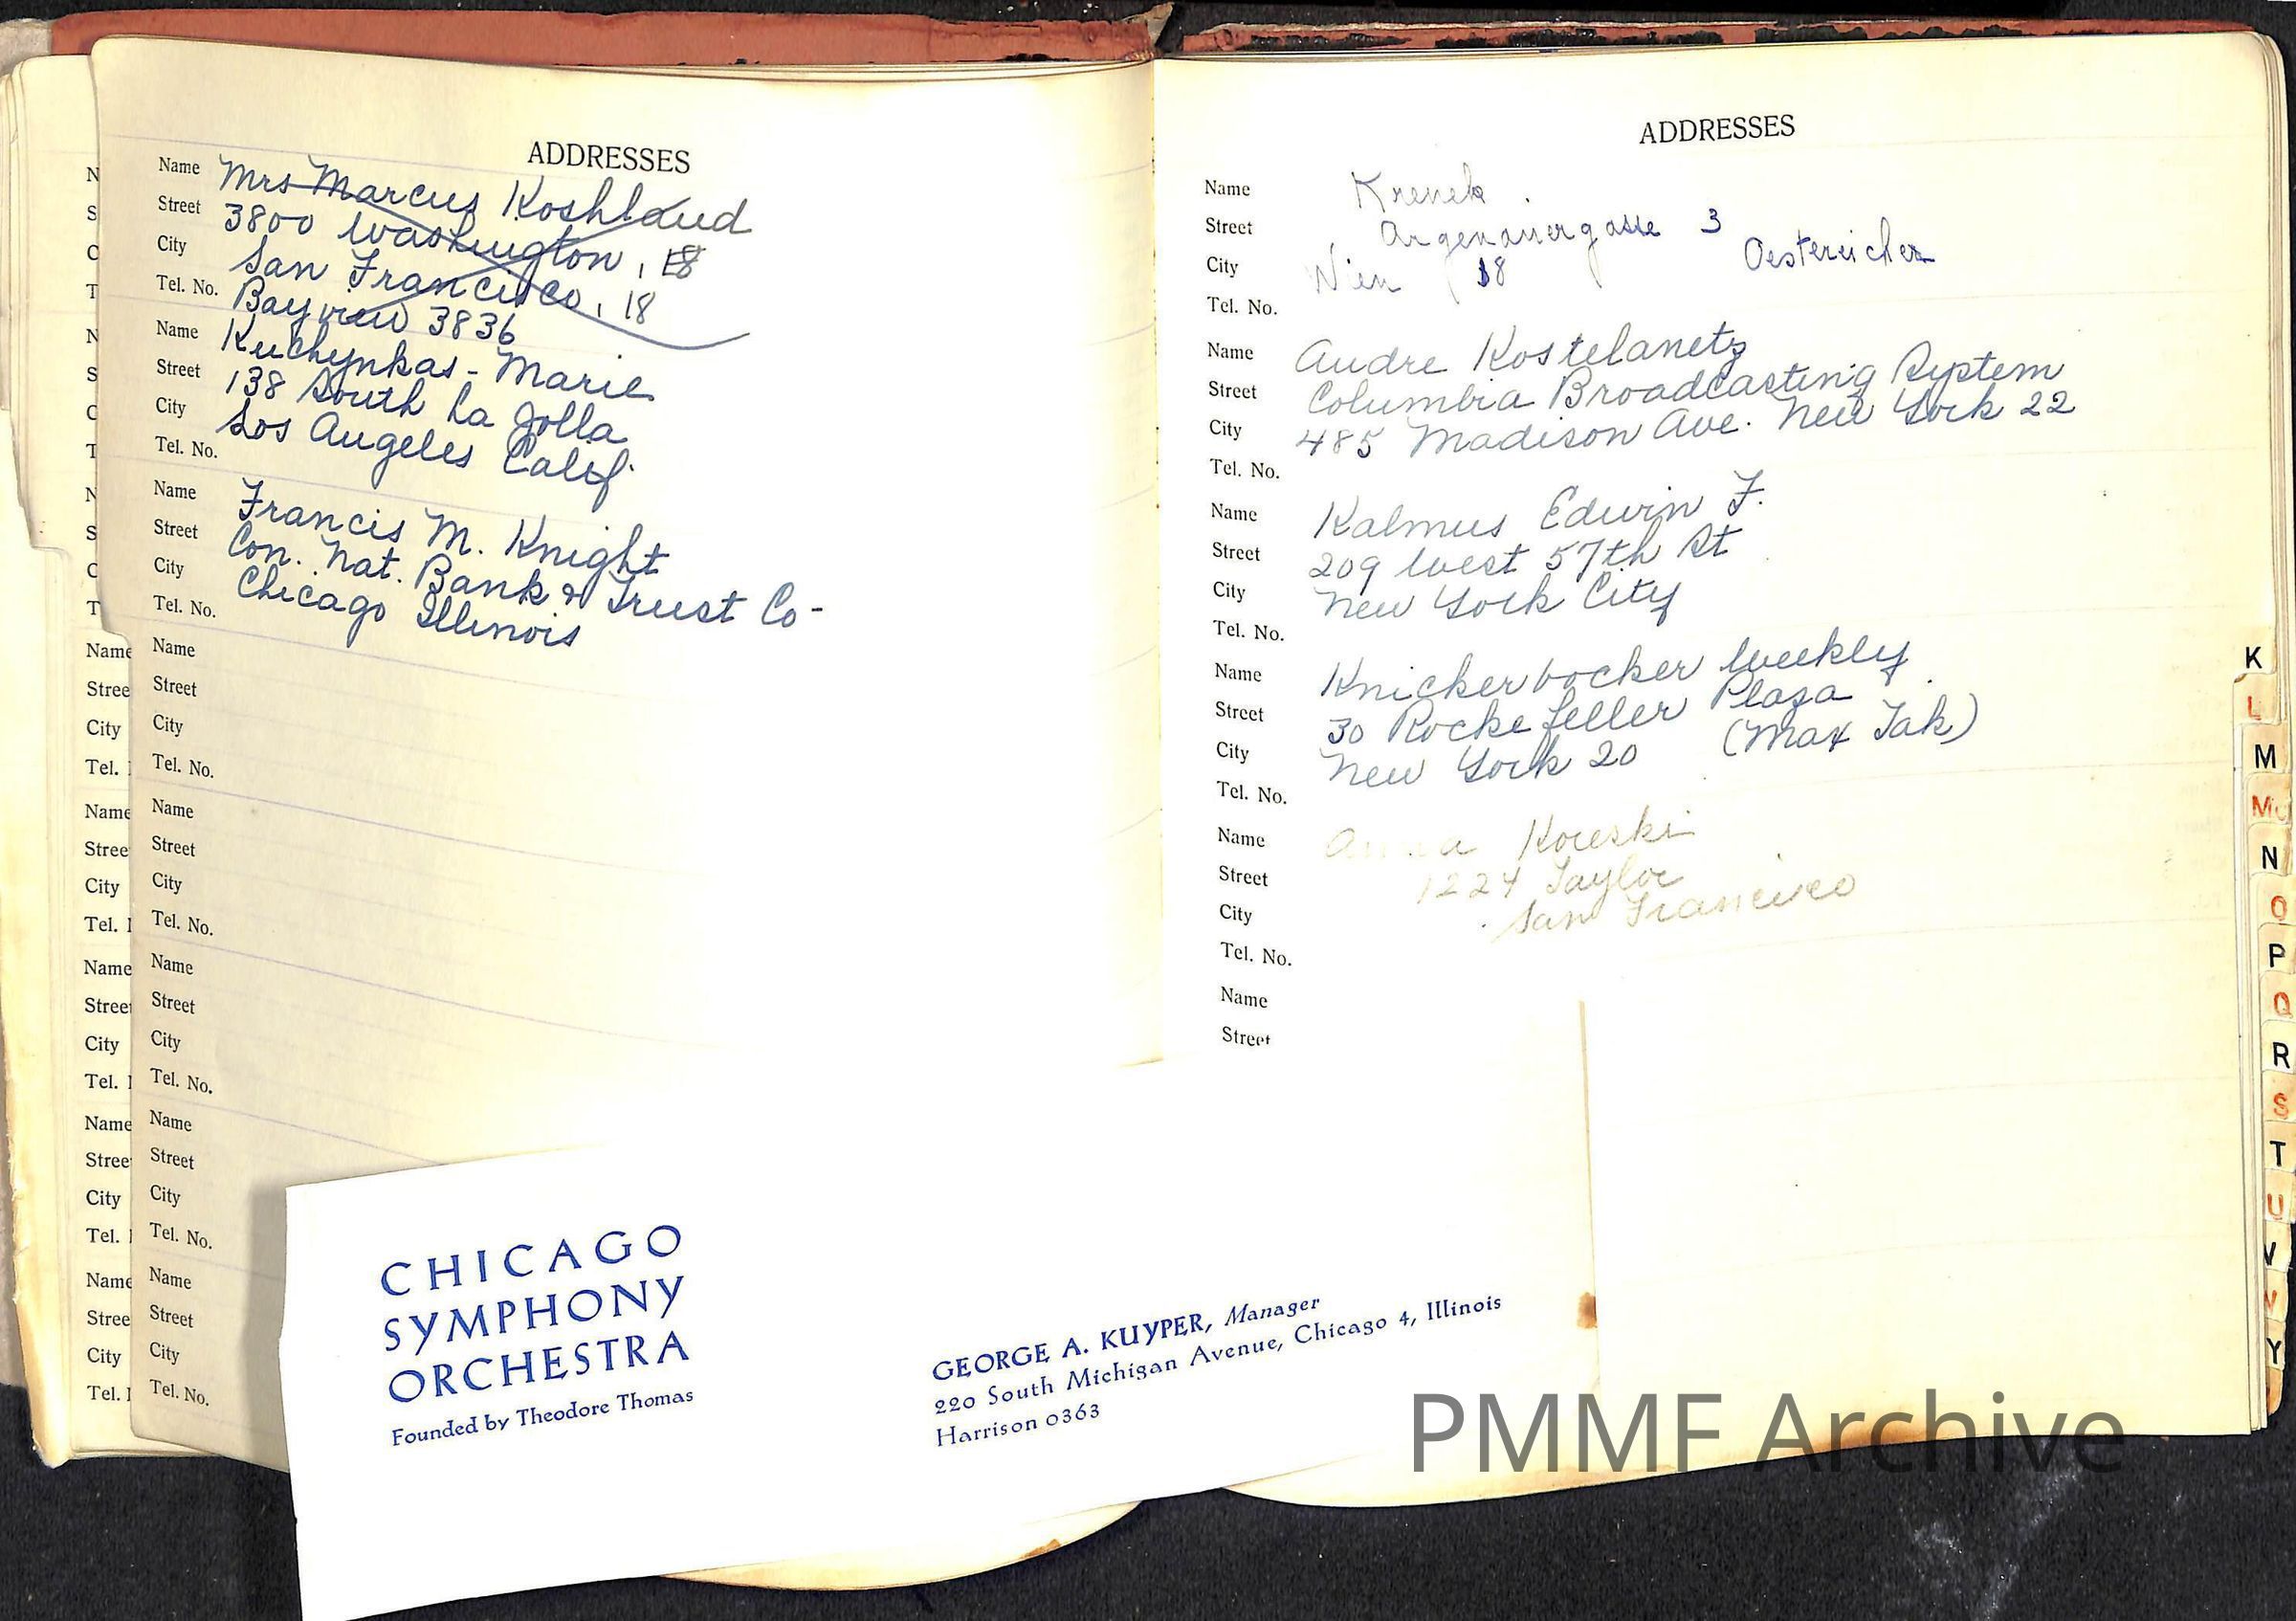 ADDRESSES
Name Mrs Marcus Koshland
Street 3800 Washington, 18
City San Francisco, 18
Tel. No. Bayview 3836
Name Kuchynkas - Marie
Street 138 South La Jolla
City Los Angeles Calif.
Tel. No.
Name Francis M. Knight
Street Con. Nat. Bank & Trust Co-
City Chicago Illinois
Tel. No.
Name
Street
City
Tel. No.
Name
Street
City
Tel. No.
Name
Street
City
Tel. No.
Name
Street
City
Tel. No.
Name
Street
City
Tel. No.
N
S
C
T
N
S
C
T
N
S
C
T
Name
Stree
City
Tel.
Name
Stree
City
Tel.
Name
Street
City
Tel.
Name
Stree
City
Tel.
Name
Stree
City
Tel.
ADDRESSES
Name Krenek
Street 3
City Wien 18
Tel. No.
Name Andre Kostelanetz
Street Columbia Broadcasting System
City 485 Madison Ave. New York 22
Tel. No.
Name Kalmus Edwin F.
Street 209 West 57th St
City New York City
Tel. No.
Name Knickerbocker Weekly
Street 30 Rockefeller Plaza
City New York 20 (Max Tak)
Tel. No.
Name Anna
Street 1224 Taylor
City San Francisco
Tel. No.
Name
Street
K
L
M
Mc
N
O
P
Q
R
S
T
U
V
W
Y
CHICAGO
SYMPHONY
ORCHESTRA
Founded by Theodore Thomas
GEORGE A. KUYPER, Manager
220 South Michigan Avenue, Chicago 4, Illinois
Harrison 0363
PMMF Archive